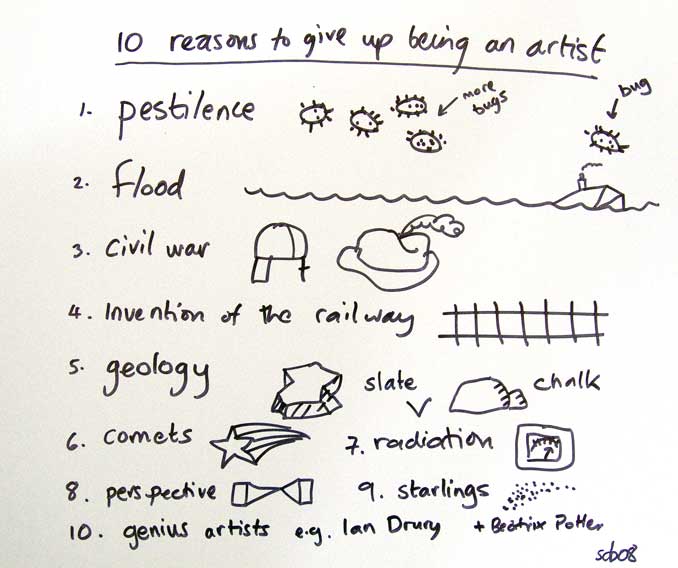 10 reasons to give up being an artist
1. pestilence more bugs bug
2. flood
3. civil war
4. Invention of the railway
5. geology slate chalk
6. comets 7. radiation
8. perspective 9. starlings
10. genius artists e.g. Ian Drury + Beatrix Potter
scb08